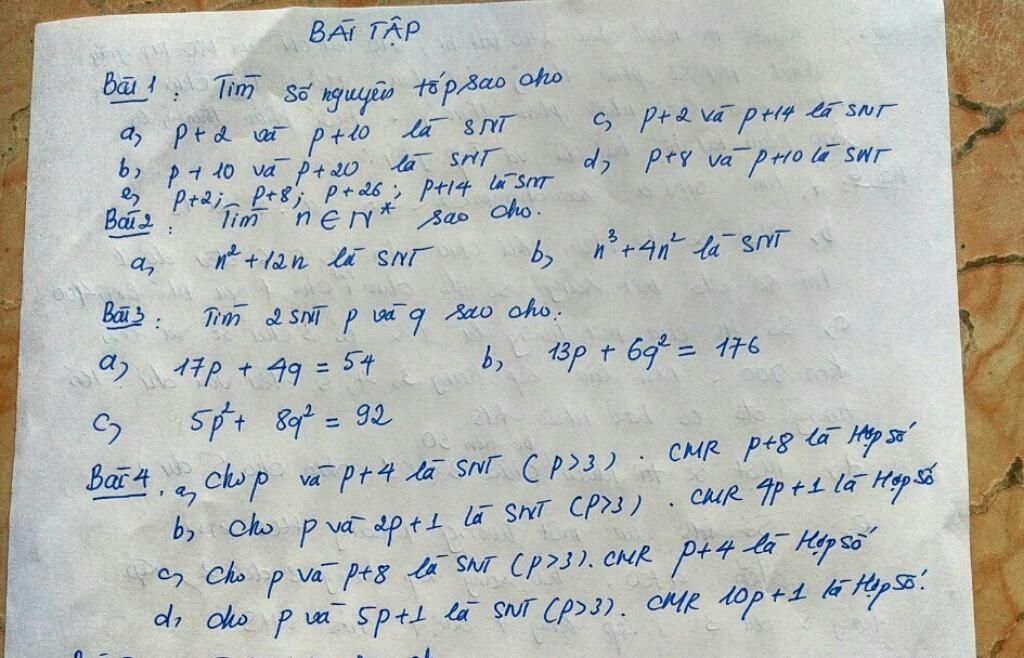 BÀI TẬP
Bài 1 : Tìm số nguyên tố p sao cho
a, p+2 và p+10 là SNT c, p+2 và p+14 là SNT
b, p+10 và p+20 là SNT d, p+8 và p+10 là SNT
e, p+2; p+8; p+26; p+14 là SNT
Bài 2 : Tìm n ∈ N* sao cho.
a, n² + 12n là SNT b, n³ + 4n² là SNT
Bài 3 : Tìm 2 SNT p và q sao cho:
a, 17p + 4q = 54 b, 13p + 6q² = 176
c, 5p² + 8q² = 92
Bài 4. a, Cho p và p+4 là SNT (p>3). CMR p+8 là Hợp số
b, Cho p và 2p+1 là SNT (p>3). CMR 4p+1 là Hợp số
c, Cho p và p+8 là SNT (p>3). CMR p+4 là Hợp số
d, Cho p và 5p+1 là SNT (p>3). CMR 10p+1 là Hợp số.